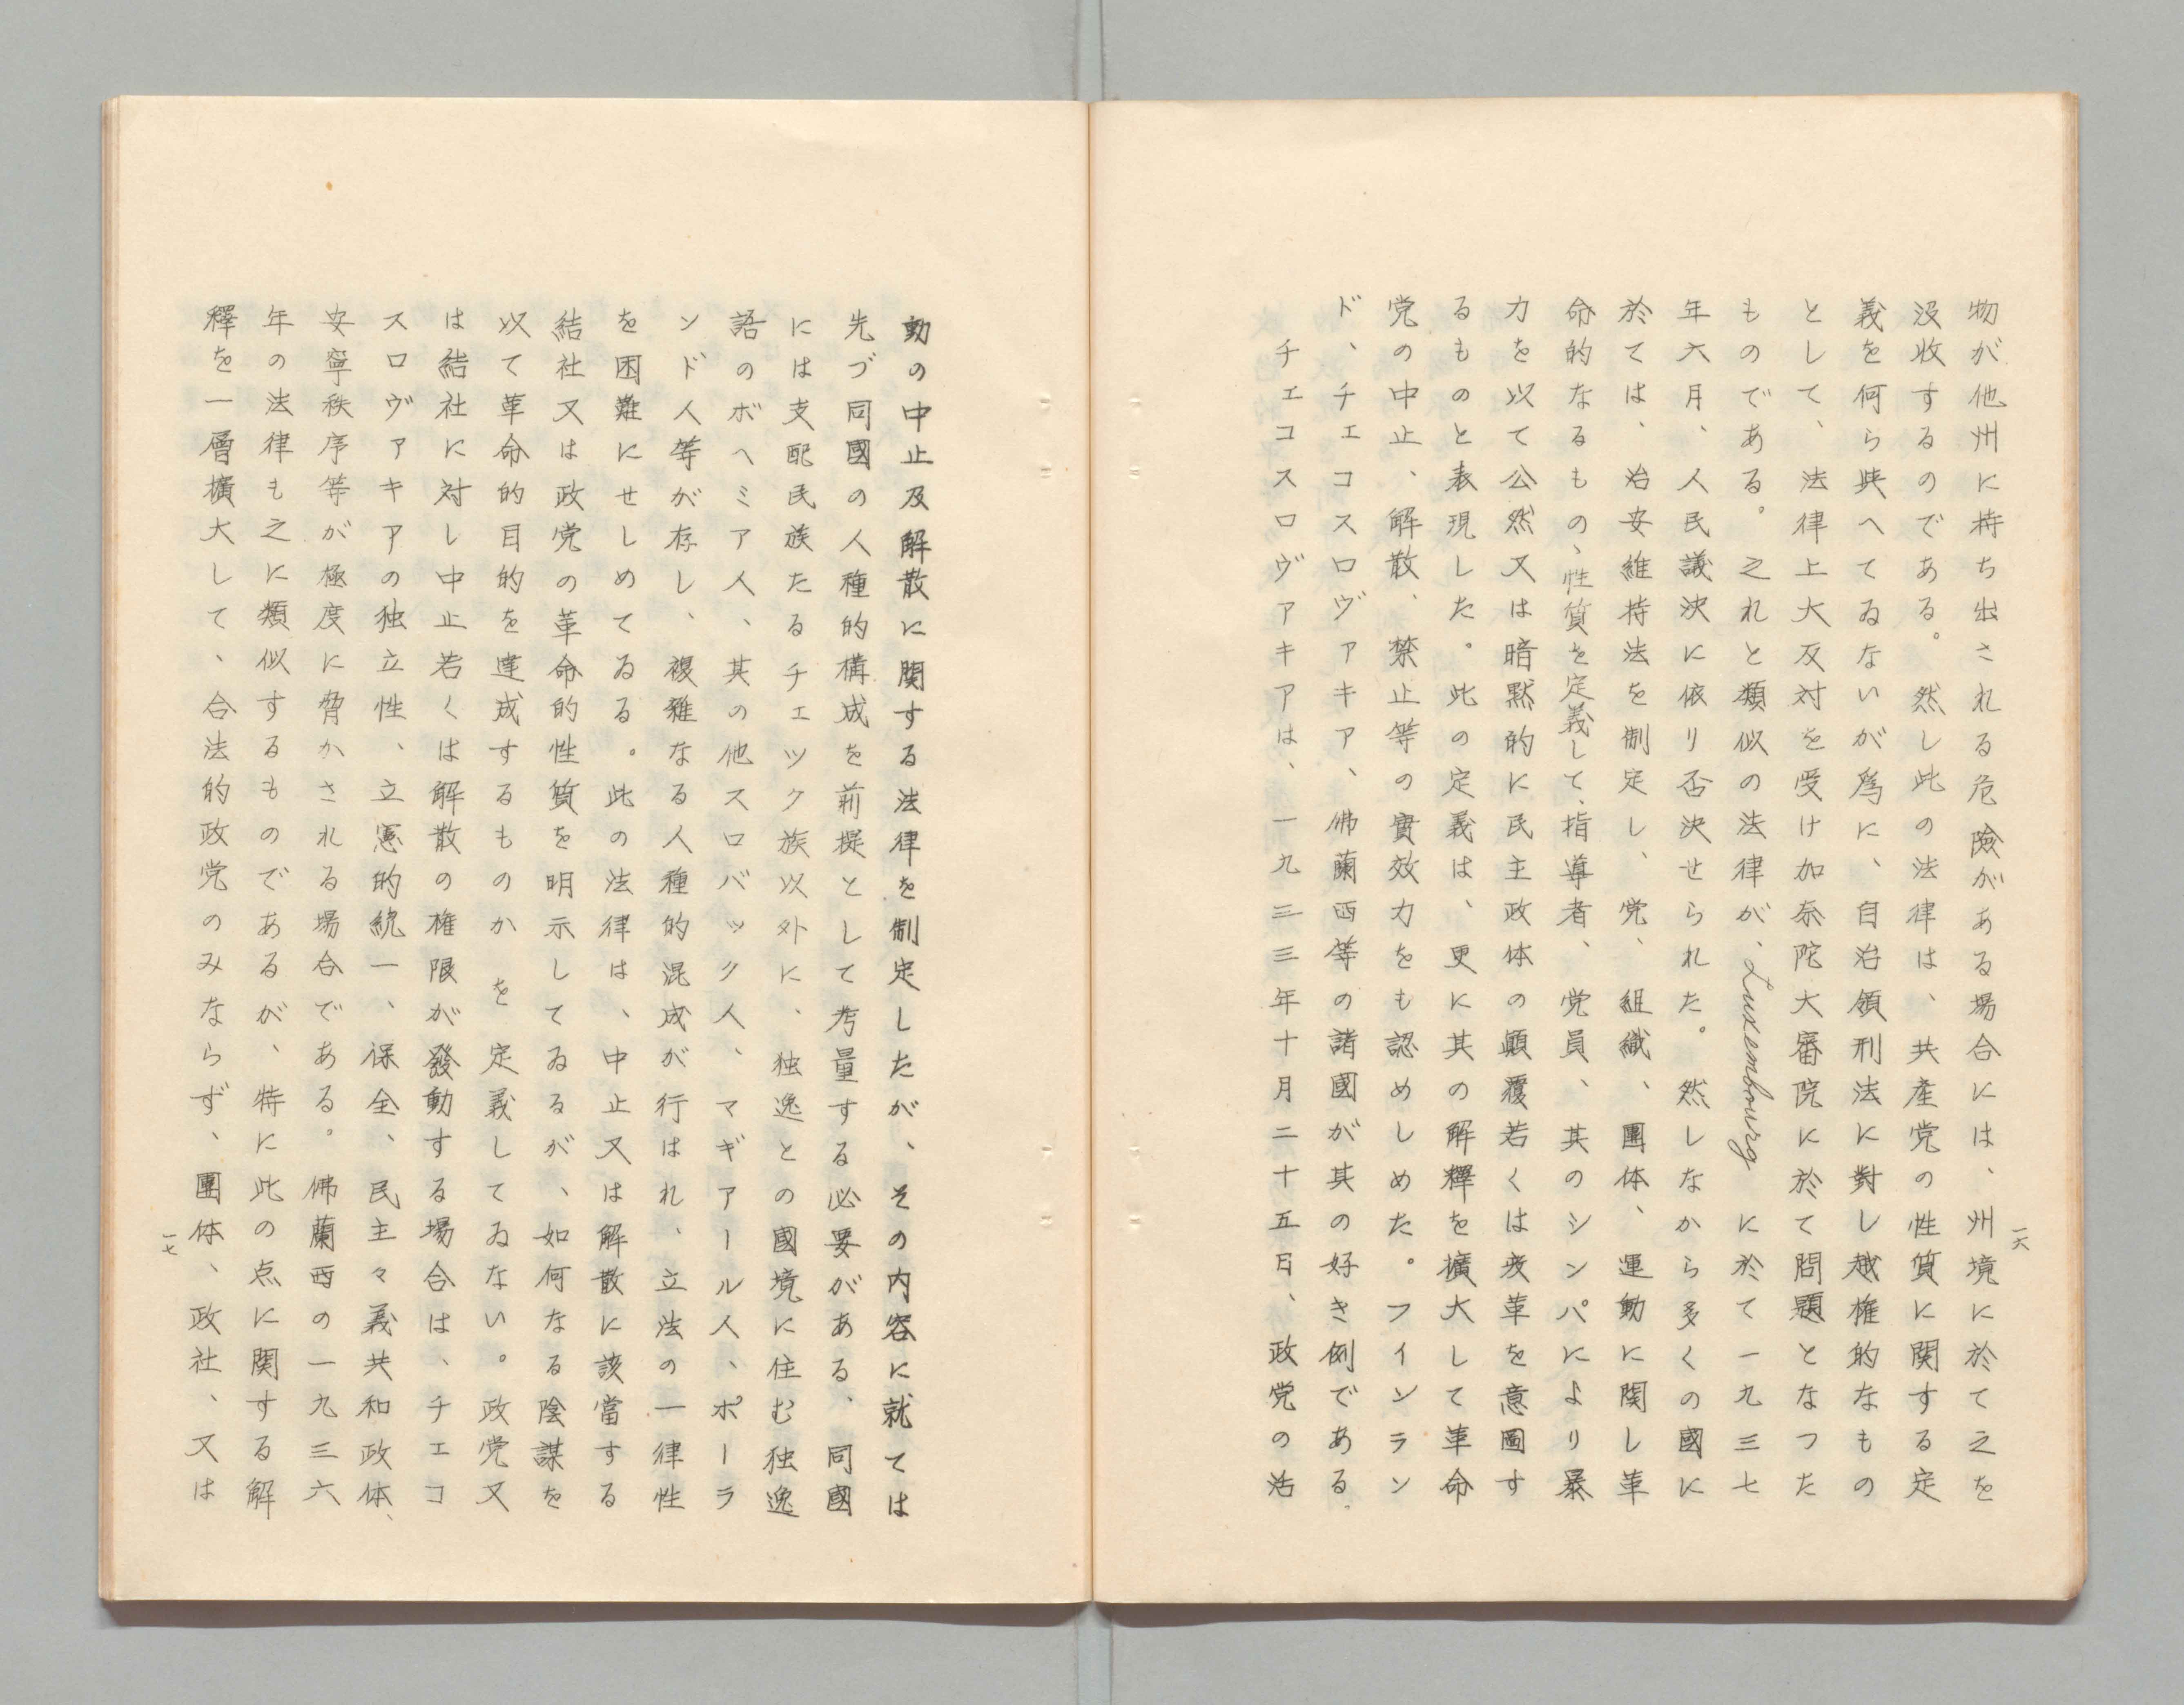 一六
物が他州に持ち出される危險がある場合には、州境に於て之を
没收するのである。然し此の法律は、共産党の性質に関する定
義を何ら與へてゐないが爲に、自治領刑法に對し越権的なもの
として、法律上大反対を受け加奈陀大審院に於て問題となつた
ものである。之れと類似の法律が、Luxembourgに於て一九三七
年六月、人民議決に依り否決せられた。然しなから多くの國に
於ては、治安維持法を制定し、党、組織、團体、運動に関し革
命的なるもの、性質を定義して、指導者、党員、其のシンパにより暴
力を以て公然又は暗黙的に民主政体の顚覆若くは変革を意圖す
るものと表現した。此の定義は、更に其の解釋を擴大して革命
党の中止、解散、禁止等の實效力をも認めしめた。フインラン
ド、チェコスロヴァキア、佛蘭西等の諸國が其の好き例である。
チェコスロヴァキアは、一九三三年十月二十五日、政党の活
動の中止及解散に関する法律を制定したが、その内容に就ては
先づ同國の人種的構成を前提として考量する必要がある、同國
には支配民族たるチェツク族以外に、独逸との國境に住む独逸
語のボヘミア人、其の他スロバック人、マギアール人、ポーラ
ンド人等が存し、複雑なる人種的混成が行はれ、立法の一律性
を困難にせしめてゐる。此の法律は、中止又は解散に該當する
結社又は政党の革命的性質を明示してゐるが、如何なる陰謀を
以て革命的目的を達成するものか を定義してゐない。政党又
は結社に対し中止若くは解散の権限が發動する場合は、チエコ
スロヴァキアの独立性、立憲的統一、保全、民主々義共和政体、
安寧秩序等が極度に脅かされる場合である。佛蘭西の一九三六
年の法律も之に類似するものであるが、特に此の点に関する解
釋を一層擴大して、合法的政党のみならず、團体、政社、又は
一七